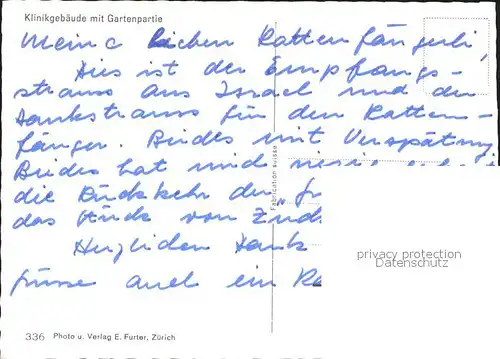 Klinikgebäude mit Gartenpartie
Meine lieben Rattenfängerli,
Dies ist der Empfangs-
strauss aus Israel und der
Dankstrauss für den Ratten-
fänger. Beides mit Verspätung
Beides hat mich
die Rückkehr der
das Glück von
Herzlichen Dank
Grüsse auch ein
Fabrication suisse
privacy protection
Datenschutz
336 Photo u. Verlag E. Furter, Zürich